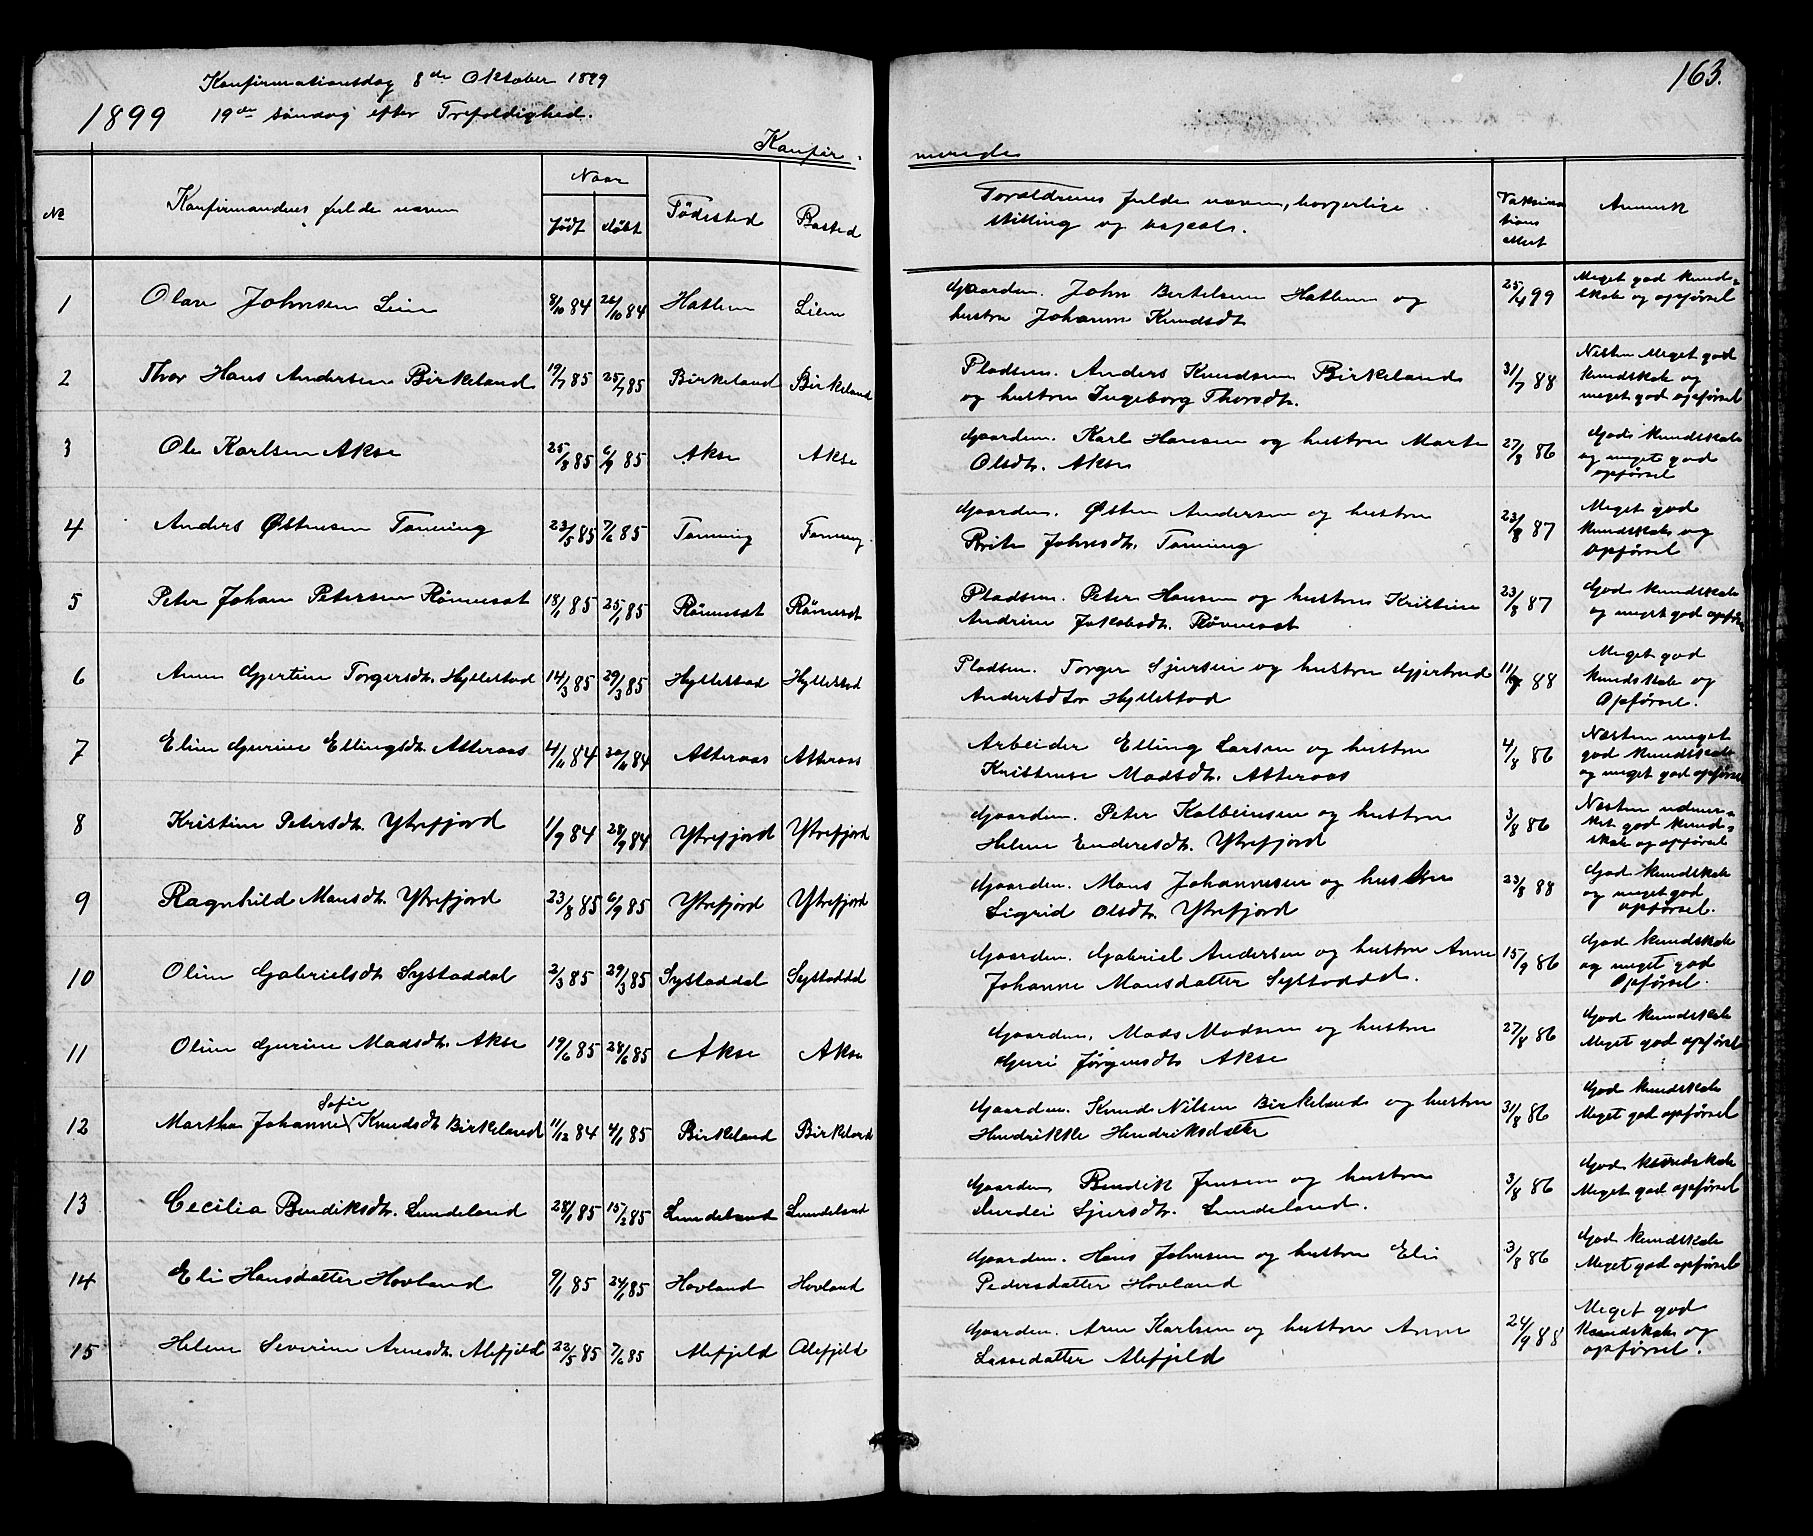 163.
Konfirmationsdag 8de Oktober 1899
1899 19de søndag efter Trefoldighed.
Konfir- merede
No Konfirmandens fulde navn Naar Født døbt Fødested Bosted Forældrenes fulde navn, borgerlige stilling og bopæl. Vaksinations Attest Anmerk
1 Olav Johnsen Lien 8/10 84 26/10 84 Hatlem Lien Gaardm. John Bertelsen Hatlem og 25/4 99 Meget god kund-
hustru Johanne Knudsdt skab og opførsel
2 Thor Hans Andersen Birkeland 19/7 85 25/7 85 Birkeland Birkeland Pladsm. Anders Knudsen Birkeland 31/7 88 Næsten Meget god
og hustru Ingeborg Thorsdt. kundskab og
meget god opførsel
3 Ole Karlsen Akse 25/8 85 6/9 85 Akse Akse Gaardm. Karl Hansen og hustru Marte 27/8 86 God kundskab
Olsdt. Akse og meget god
opførsel
4 Anders Østensen Tonning 23/5 85 7/6 85 Tonning Tonning Gaardm. Østen Andersen og hustru 23/8 87 Meget god
Brite Johnsdt. Tonning kundskab og
opførsel
5 Peter Johan Petersen Rønneset 18/1 85 25/1 85 Rønneset Rønneset Pladsm. Peter Hansen og hustru Kristine 23/8 87 God kundskab
Andrine Jakobsdt. Rønneset og meget god opførsel
6 Anne Gjertine Torgersdt. Hyllestad 14/3 85 29/3 85 Hyllestad Hyllestad Pladsm. Torger Sjursen og hustru Gjertrud 88 Meget god
Andersdtor Hyllestad kundskab og
Opførsel.
7 Eline Gurine Ellingsdt. Atteraas 4/11 84 20/11 84 Atteraas Atteraas Arbeider Elling Larsen og hustru 4/8 86 Næsten meget
Kristense Madsdt. Atteraas god kundskab
og meget god opførsel
8 Kristine Petersdt. Ytrefjord 1/9 84 28/9 84 Ytrefjord Ytrefjord Gaardm. Peter Kolbeinsen og hustru 3/8 86 Næsten udmer-
Helene Endresdt. Ytrefjord ket god kund-
skab og opførsel
9 Ragnhild Monsdt. Ytrefjord 23/8 85 6/9 85 Ytrefjord Ytrefjord Gaardm. Mons Johannesen og hustru 23/8 88 God kundskab
Sigrid Olsdt. Ytrefjord og meget god
opførsel.
10 Oline Gabrielsdt. Systaddal 2/3 85 29/3 85 Systaddal Systaddal Gaardm. Gabriel Andersen og hustru Anne 15/9 86 God kundskab
Johanne Monsdatter Systaddal. og meget god
Opførsel.
11 Oline Gurine Madsdt. Akse 19/6 85 28/6 85 Akse Akse Gaardm. Mads Madsen og hustru 27/8 86 God kundskab
Guri Jørgensdt. Akse Meget god opførsel
12 Martha Johanne Sofie Knudsdt. Birkeland 11/12 84 4/1 85 Birkeland Birkeland Gaardm. Knud Nilsen Birkeland og hustru 31/8 86 God kundskab
Hendrikke Hendriksdatter Meget god opførsel
13 Cecilia Bendiksdt. Lundeland 28/1 85 15/2 85 Lundeland Lundeland Gaardm Bendik Jensen og hustru 3/8 86 God kundskab
Sjursdt. Lundeland. Meget god opførsel
14 Eli Hansdatter Hovland 9/1 85 24/1 85 Hovland Hovland Gaardm. Hans Johnsen og hustru Eli 3/8 86 God kundskab
Pedersdatter Hovland Meget god opførsel
15 Helene Severine Arnesdt. Alefjeld 22/5 85 7/6 85 Alefjeld Alefjeld Gaardm. Arne Karlsen og hustru Anne 24/9 88 Meget god
Lassedatter Alefjeld kundskab og
opførsel.